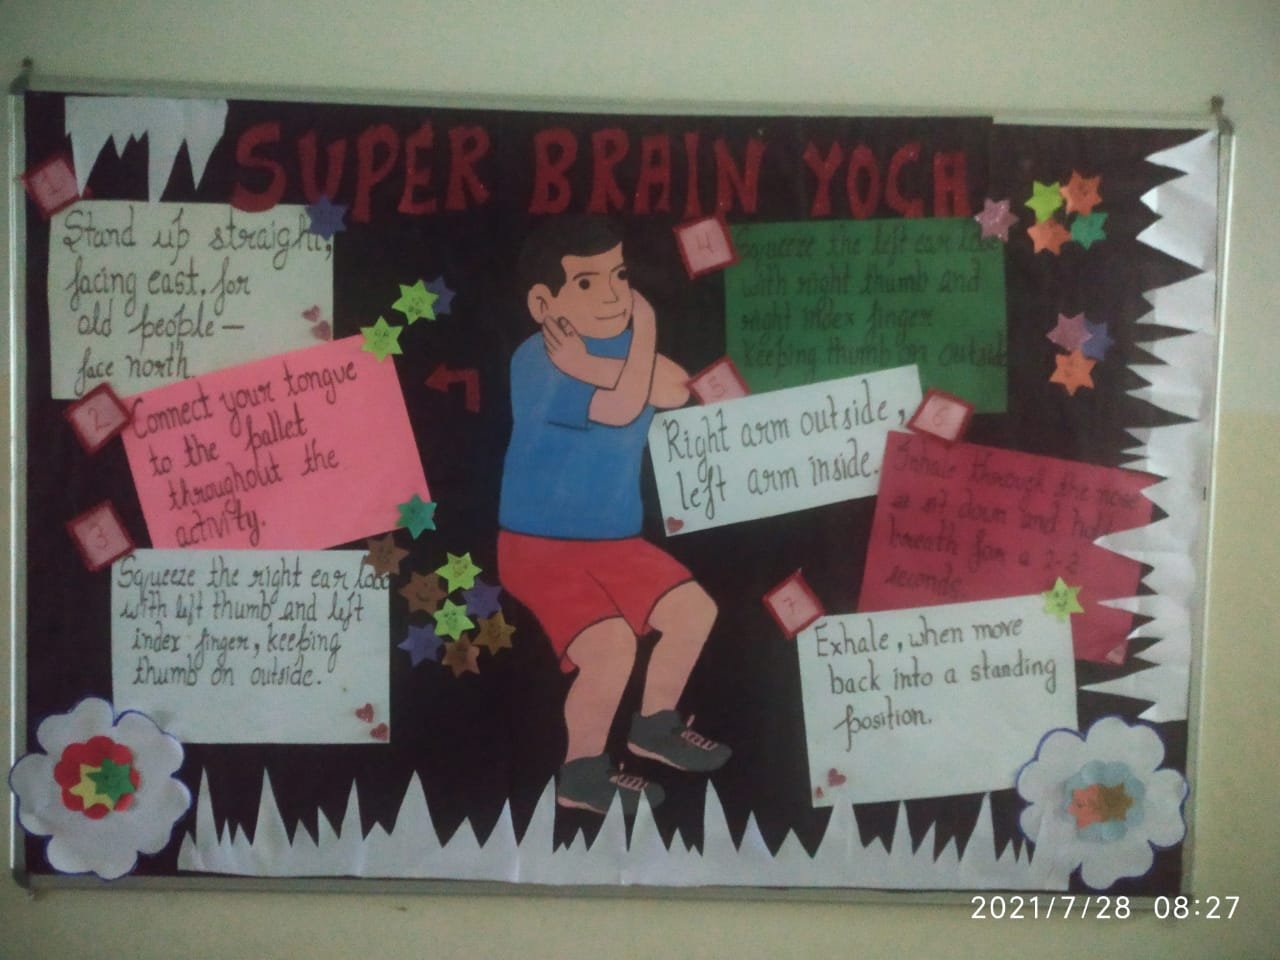 SUPER BRAIN YOGA
1
Stand up straight,
facing east. for
old people—
face north.
2
Connect your tongue
to the pallet
throughout the
activity.
3
Squeeze the right ear lobe
with left thumb and left
index finger, keeping
thumb on outside.
4
Squeeze the left ear lobe
with right thumb and
right index finger
keeping thumb on outside
5
Right arm outside,
left arm inside.
6
Inhale through the nose
down and hold
breath for a 2-3
seconds.
7
Exhale, when move
back into a standing
position.
2021/7/28 08:27